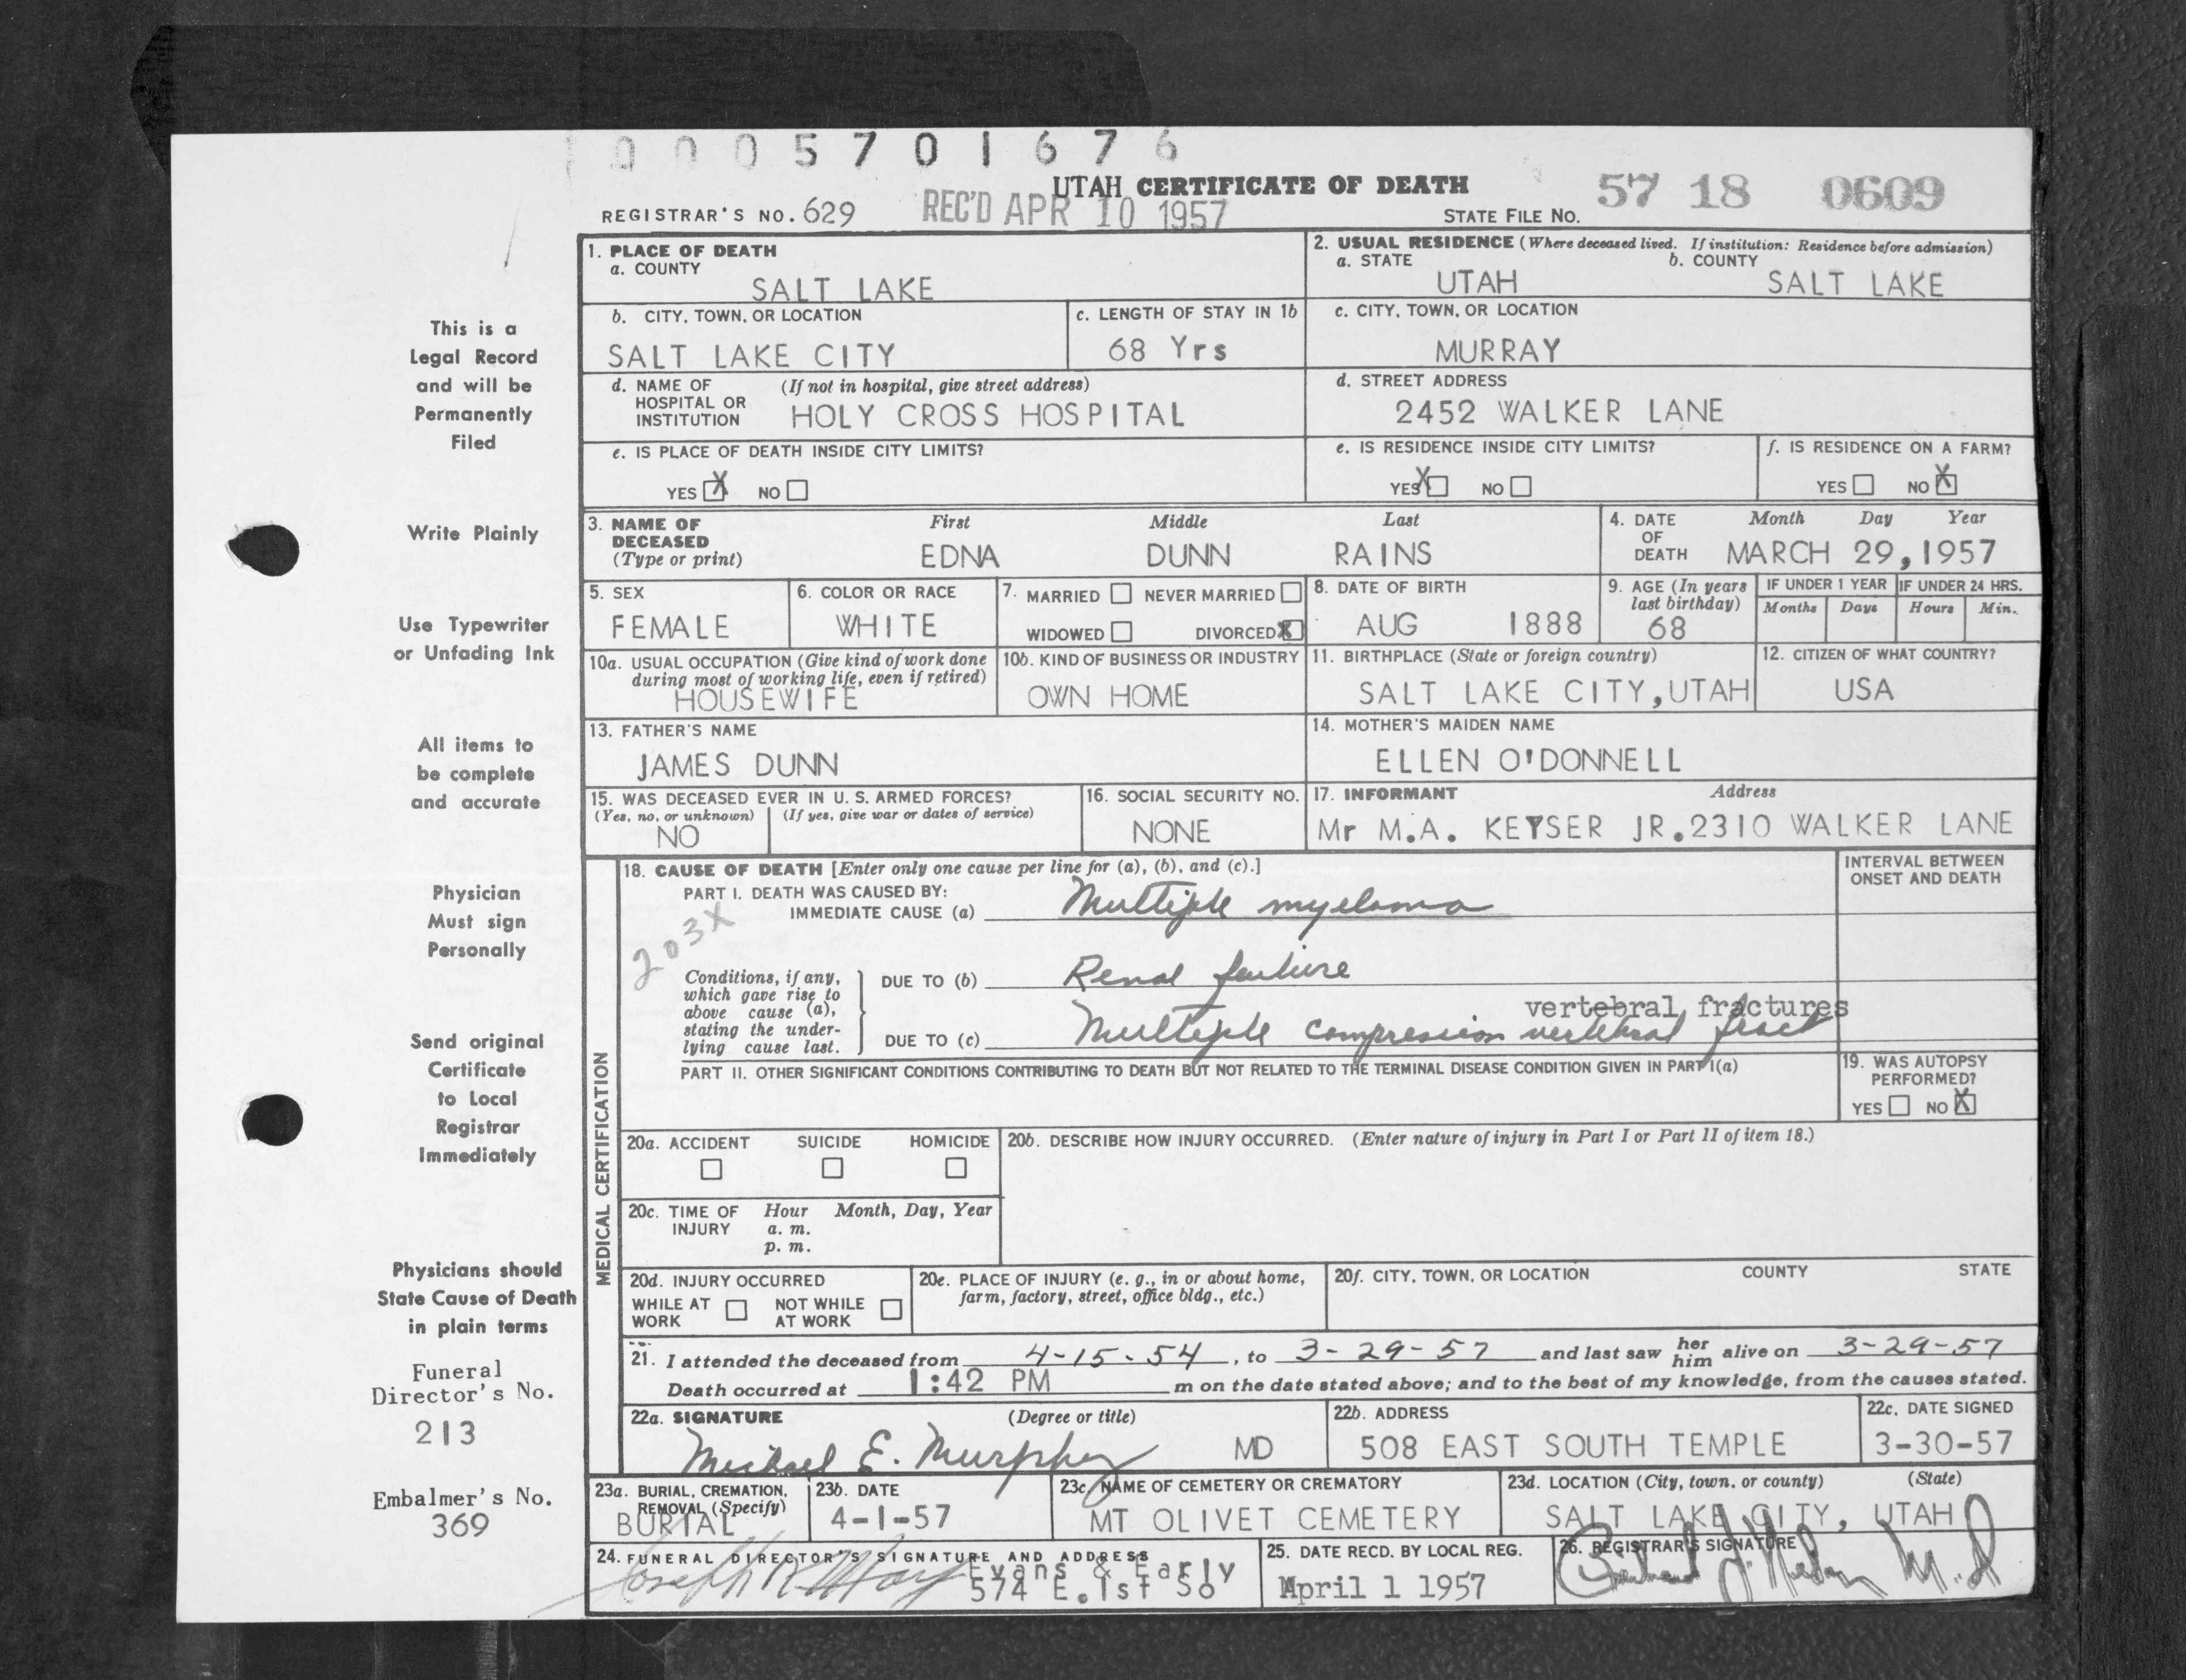 0005701676
UTAH CERTIFICATE OF DEATH
REGISTRAR'S NO. 629 REC'D APR 10 1957 STATE FILE NO. 57 18 0609
This is a
Legal Record
and will be
Permanently
Filed
Write Plainly
Use Typewriter
or Unfading Ink
All items to
be complete
and accurate
Physician
Must sign
Personally
Send original
Certificate
to Local
Registrar
Immediately
Physicians should
State Cause of Death
in plain terms
Funeral
Director's No.
213
Embalmer's No.
369
1. PLACE OF DEATH
a. COUNTY
SALT LAKE
2. USUAL RESIDENCE (Where deceased lived. If institution: Residence before admission)
a. STATE b. COUNTY
UTAH SALT LAKE
b. CITY, TOWN, OR LOCATION
SALT LAKE CITY
c. LENGTH OF STAY IN 1b
68 Yrs
c. CITY, TOWN, OR LOCATION
MURRAY
d. NAME OF (If not in hospital, give street address)
HOSPITAL OR
INSTITUTION HOLY CROSS HOSPITAL
d. STREET ADDRESS
2452 WALKER LANE
e. IS PLACE OF DEATH INSIDE CITY LIMITS?
YES X NO
e. IS RESIDENCE INSIDE CITY LIMITS?
YES X NO
f. IS RESIDENCE ON A FARM?
YES NO X
3. NAME OF First Middle Last
DECEASED
(Type or print) EDNA DUNN RAINS
4. DATE Month Day Year
OF
DEATH MARCH 29, 1957
5. SEX
FEMALE
6. COLOR OR RACE
WHITE
7. MARRIED NEVER MARRIED
WIDOWED DIVORCED X
8. DATE OF BIRTH
AUG 1888
9. AGE (In years
last birthday)
68
IF UNDER 1 YEAR IF UNDER 24 HRS.
Months Days Hours Min.
10a. USUAL OCCUPATION (Give kind of work done
during most of working life, even if retired)
HOUSEWIFE
10b. KIND OF BUSINESS OR INDUSTRY
OWN HOME
11. BIRTHPLACE (State or foreign country)
SALT LAKE CITY, UTAH
12. CITIZEN OF WHAT COUNTRY?
USA
13. FATHER'S NAME
JAMES DUNN
14. MOTHER'S MAIDEN NAME
ELLEN O'DONNELL
15. WAS DECEASED EVER IN U. S. ARMED FORCES?
(Yes, no, or unknown) (If yes, give war or dates of service)
NO
16. SOCIAL SECURITY NO.
NONE
17. INFORMANT Address
Mr M.A. KEYSER JR. 2310 WALKER LANE
MEDICAL CERTIFICATION
18. CAUSE OF DEATH [Enter only one cause per line for (a), (b), and (c).]
INTERVAL BETWEEN
ONSET AND DEATH
PART I. DEATH WAS CAUSED BY:
IMMEDIATE CAUSE (a) Multiple myeloma
203X
Conditions, if any,
which gave rise to
above cause (a),
stating the under-
lying cause last.
DUE TO (b) Renal failure
vertebral fractures
DUE TO (c) Multiple compression vertebral fract
PART II. OTHER SIGNIFICANT CONDITIONS CONTRIBUTING TO DEATH BUT NOT RELATED TO THE TERMINAL DISEASE CONDITION GIVEN IN PART I(a)
19. WAS AUTOPSY
PERFORMED?
YES NO X
20a. ACCIDENT SUICIDE HOMICIDE
20b. DESCRIBE HOW INJURY OCCURRED. (Enter nature of injury in Part I or Part II of item 18.)
20c. TIME OF Hour Month, Day, Year
INJURY a. m.
p. m.
20d. INJURY OCCURRED
WHILE AT NOT WHILE
WORK AT WORK
20e. PLACE OF INJURY (e. g., in or about home,
farm, factory, street, office bldg., etc.)
20f. CITY, TOWN, OR LOCATION COUNTY STATE
21. I attended the deceased from 4-15-54, to 3-29-57 and last saw her him alive on 3-29-57
Death occurred at 1:42 PM m on the date stated above; and to the best of my knowledge, from the causes stated.
22a. SIGNATURE (Degree or title)
Michael E. Murphy MD
22b. ADDRESS
508 EAST SOUTH TEMPLE
22c. DATE SIGNED
3-30-57
23a. BURIAL, CREMATION,
REMOVAL (Specify)
BURIAL
23b. DATE
4-1-57
23c. NAME OF CEMETERY OR CREMATORY
MT OLIVET CEMETERY
23d. LOCATION (City, town, or county) (State)
SALT LAKE CITY, UTAH
24. FUNERAL DIRECTOR'S SIGNATURE AND ADDRESS
Joseph Evans & Early
574 E. 1st So
25. DATE RECD. BY LOCAL REG.
April 1 1957
26. REGISTRAR'S SIGNATURE
M.D